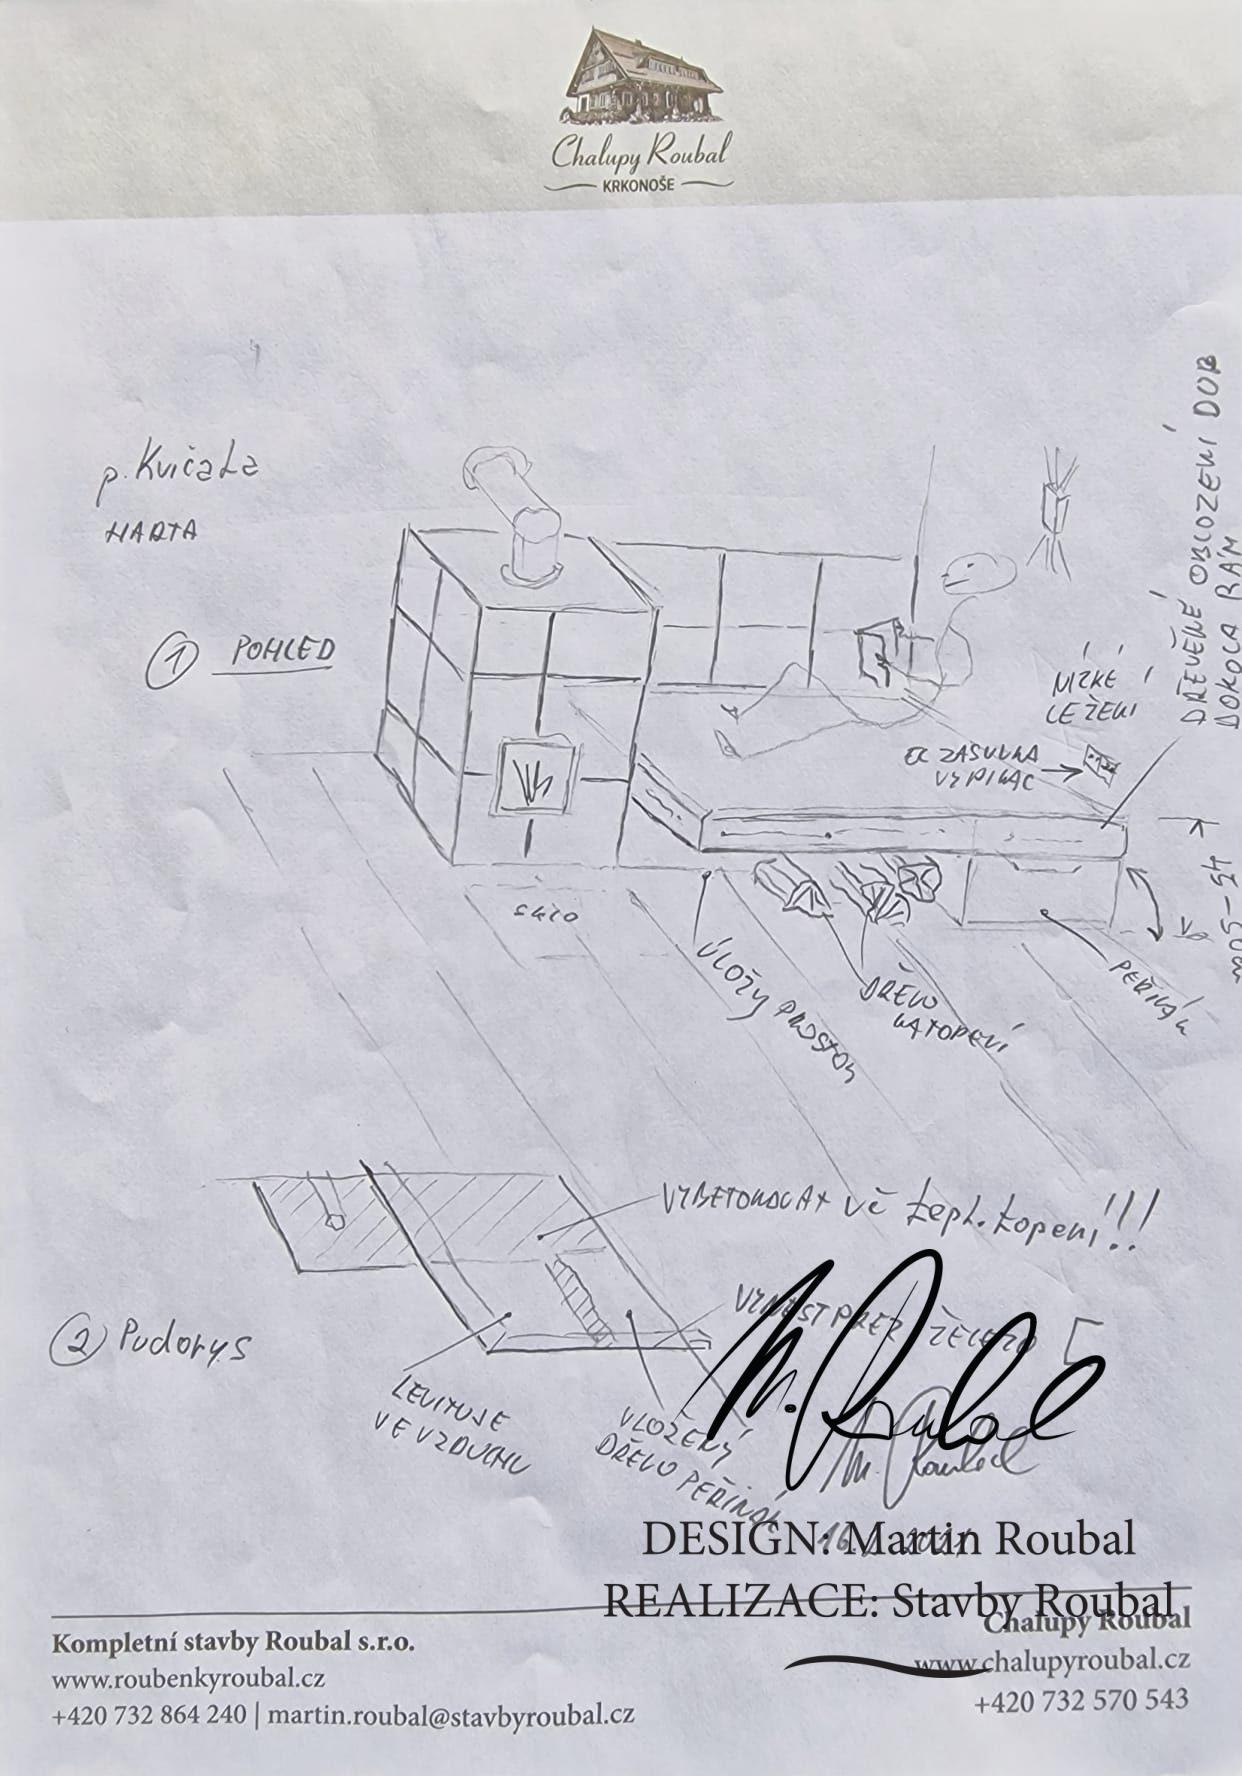 Chalupy Roubal
KRKONOŠE
p. Kvičala
HARTA
1 POHLED
DŘEVĚNÉ OBLOŽENÍ DUB
DOKOLA RÁM
NÍZKÉ
LEŽENÍ
EL ZÁSUVKA
VYPÍNAČ
45-50
SKLO
ÚLOŽY PROSTOR
DŘEVO
NATOPENÍ
PEŘIŇÁK
VYBETONOVAT VČ tepl. topení!!!
VYNÉST PŘES ŽELEZO [
2 Pudorys
LEVITUJE
VE VZDUCHU
VLOŽENÝ
DŘEVO PEŘIŇÁK
M. Roubal
M. Roubal
DESIGN: Martin Roubal
REALIZACE: Stavby Roubal
Kompletní stavby Roubal s.r.o.
www.roubenkyroubal.cz
+420 732 864 240 | martin.roubal@stavbyroubal.cz
Chalupy Roubal
www.chalupyroubal.cz
+420 732 570 543